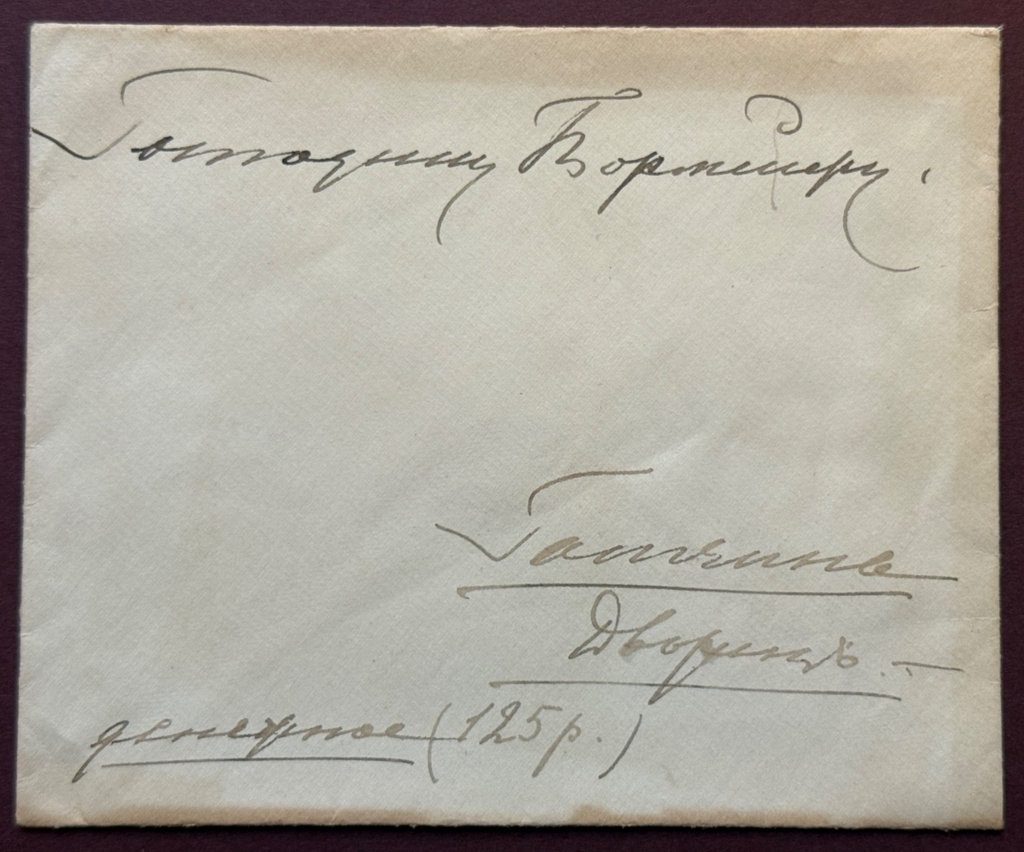 Господину Бормейеру.
Гатчина
Дворецъ. —
денежное (125 р.)